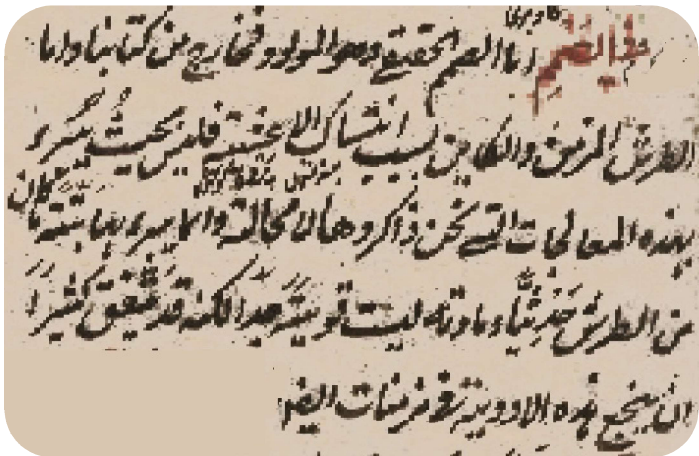 في الصمم اما الصم الحقيقي وهو المولود فخارج من كتابنا واما
الطرش المزمن والكاين بسبب انتساك الاعشية فليس بحيث يبرء
بهذه المعالجات التي نحن ذاكروها لا محالة وانما يبرء بها بتة ما كان
من الطرش حديثا ومادته ليست قوية جدا لكنه قد يتفق كثيرا
ان ينجع هذه الادوية في مزمنات